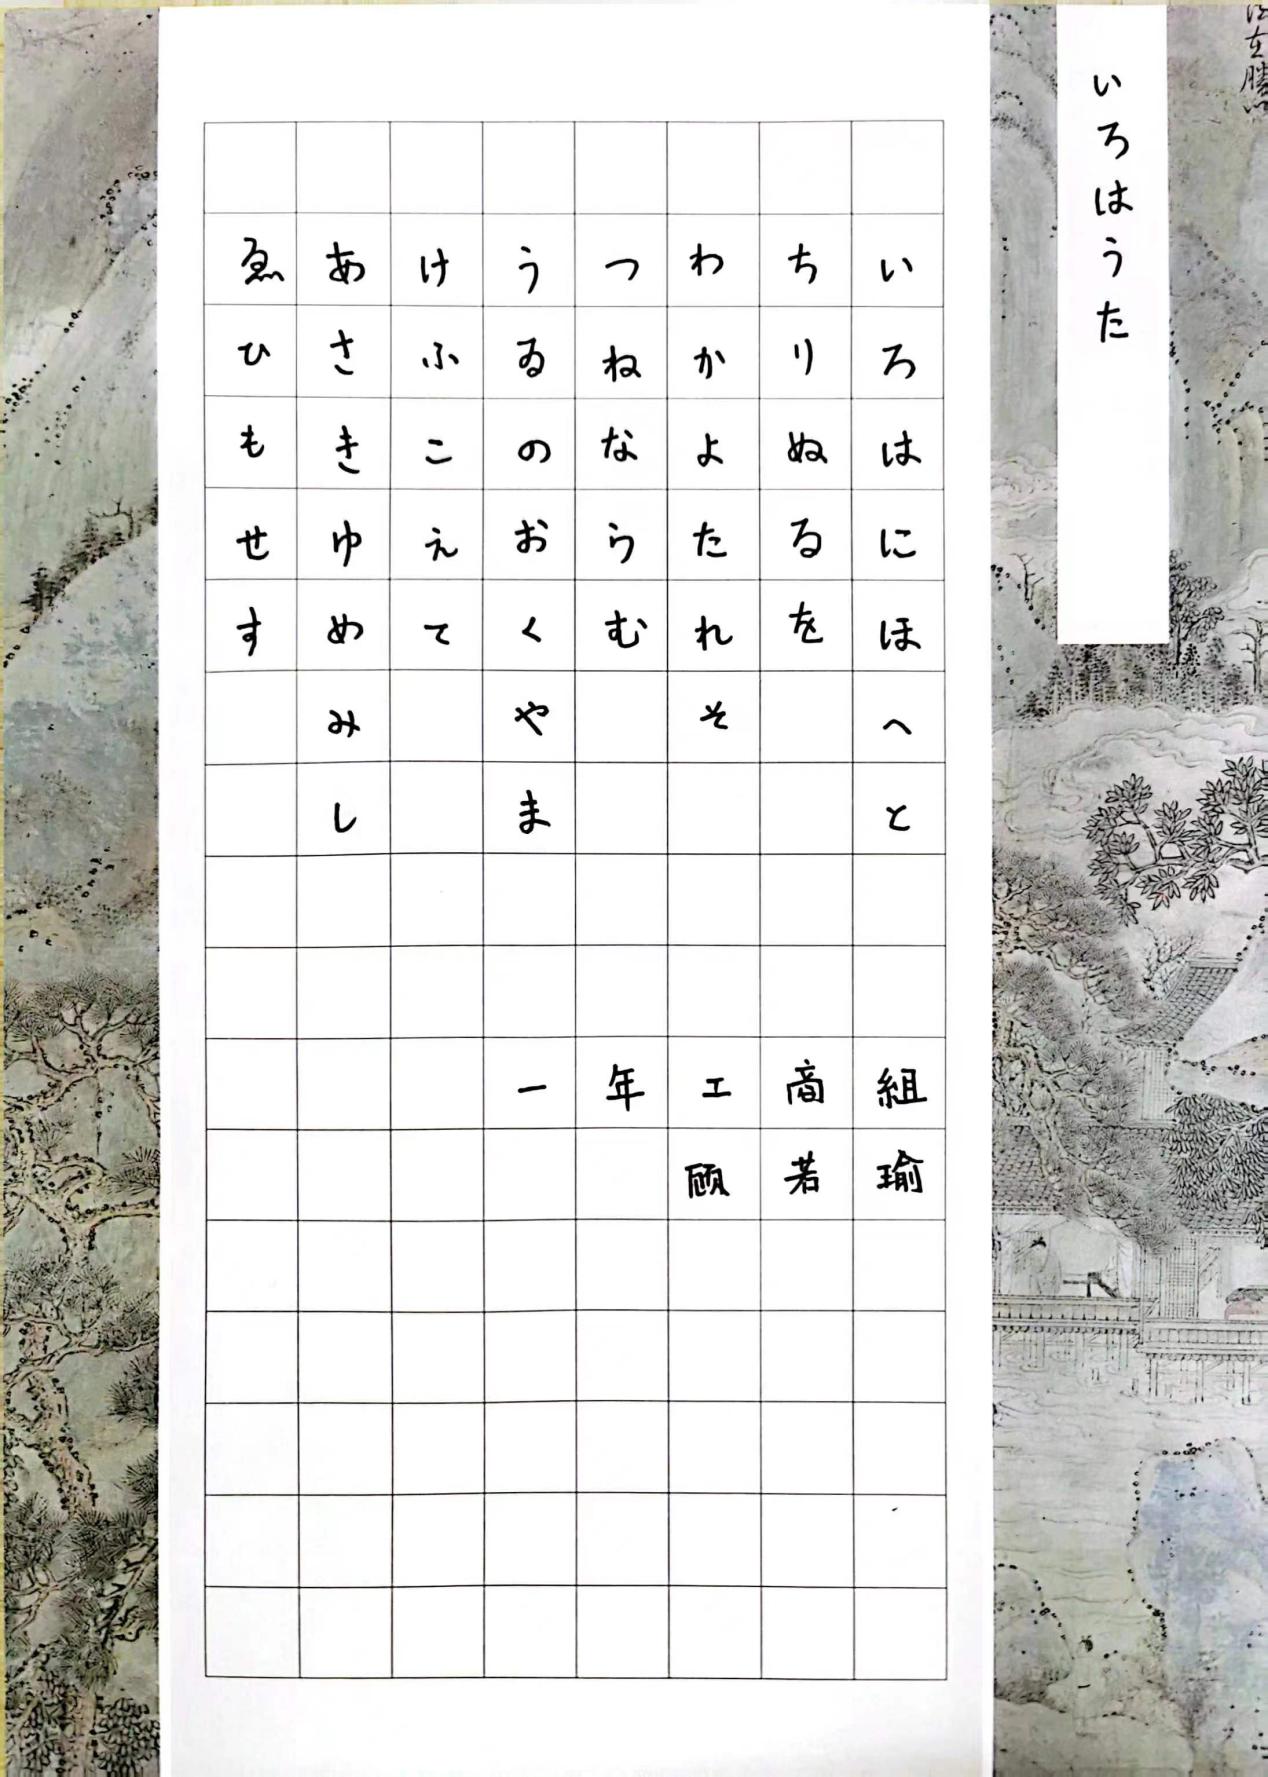 いろはうた
いろはにほへと
ちりぬるを
わかよたれそ
つねならむ
うゐのおくやま
けふこえて
あさきゆめみし
ゑひもせす
一年工商組
顾若瑜